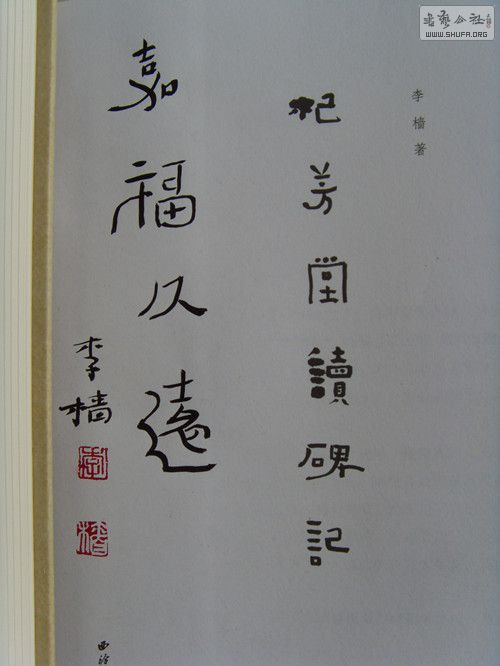 书艺公社
WWW.SHUFA.ORG
李檣著
杞芳堂讀碑記
嘉福久遠
李檣
西泠